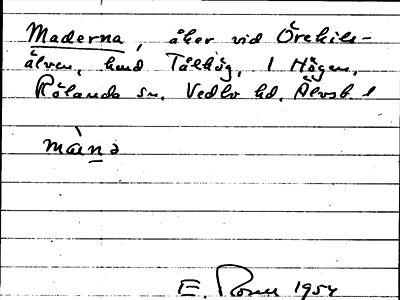 Maderna, åker vid Örekils-
älven, hmd Tålhög, 1 Högen,
Rölanda sn. Vedbo hd. Älvsb. l
màṉə
E. 1954